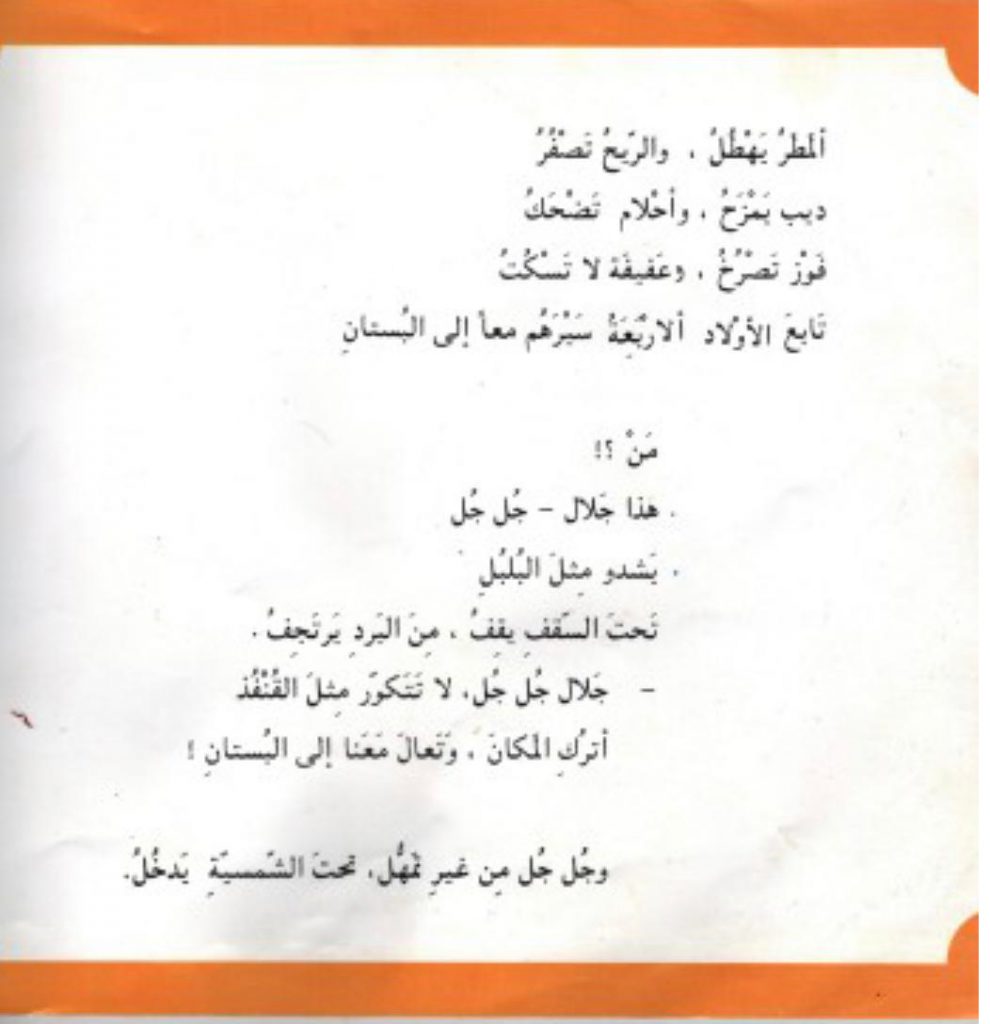 ألمَطرُ يَهْطُلُ ، والرّيحُ تَصْفُرُ
ديب يَمْزَحُ ، وأحْلام تَضْحَكُ
فَوْز تَصْرُخُ ، وعَفيفَة لا تَسْكُتُ
تَابعَ الأوْلاد ألارْبَعَةُ سَيْرَهُم معاً إلى البُستانِ
مَنْ ؟!
هذا جَلال - جُل جُل
يَشدو مِثلَ البُلبُلِ
تَحتَ السَقفِ يقِفُ ، مِنَ البَردِ يَرتَجِفُ .
- جَلال جُل جُل، لا تَتَكوّر مِثلَ القُنْفُذ
أترُكِ المَكانَ ، وَتَعالَ مَعَنا إلى البُستانِ !
وجُل جُل مِن غيرِ تمَهُّل، تحتَ الشّمسيّةِ يَدخُلُ.